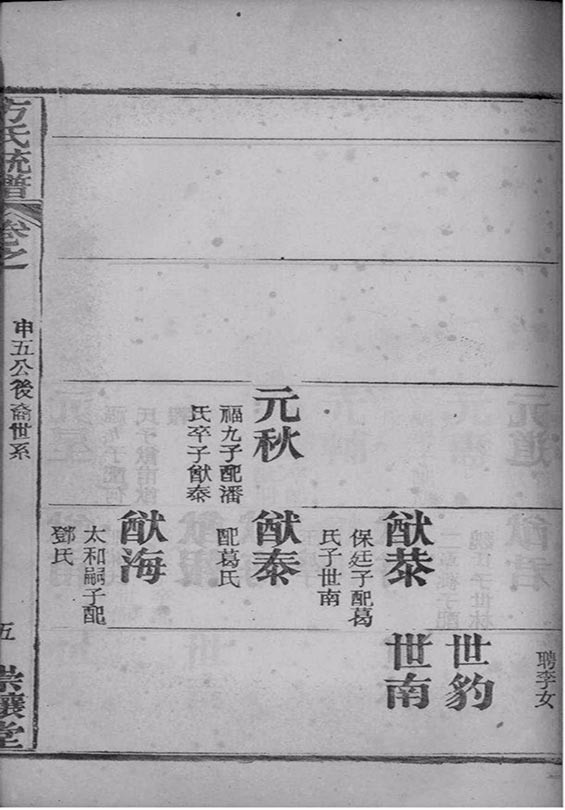 聘李女
世豹
猷恭
保廷子配葛
氏子世南
世南
元秋
福九子配潘
氏卒子猷泰
猷泰
配葛氏
猷海
太和嗣子配
鄧氏
方氏統譜
卷之
申五公後裔世系
五
崇讓堂